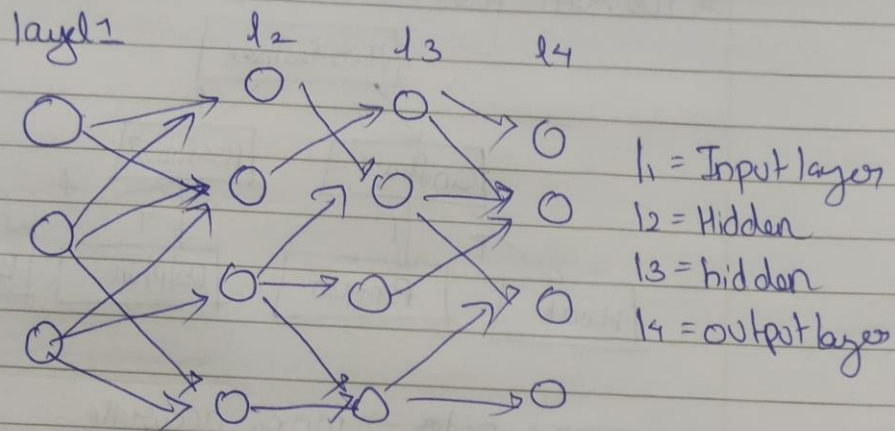 layer1 l2 l3 l4
l1 = Input layer
l2 = Hidden
l3 = hidden
l4 = output layer